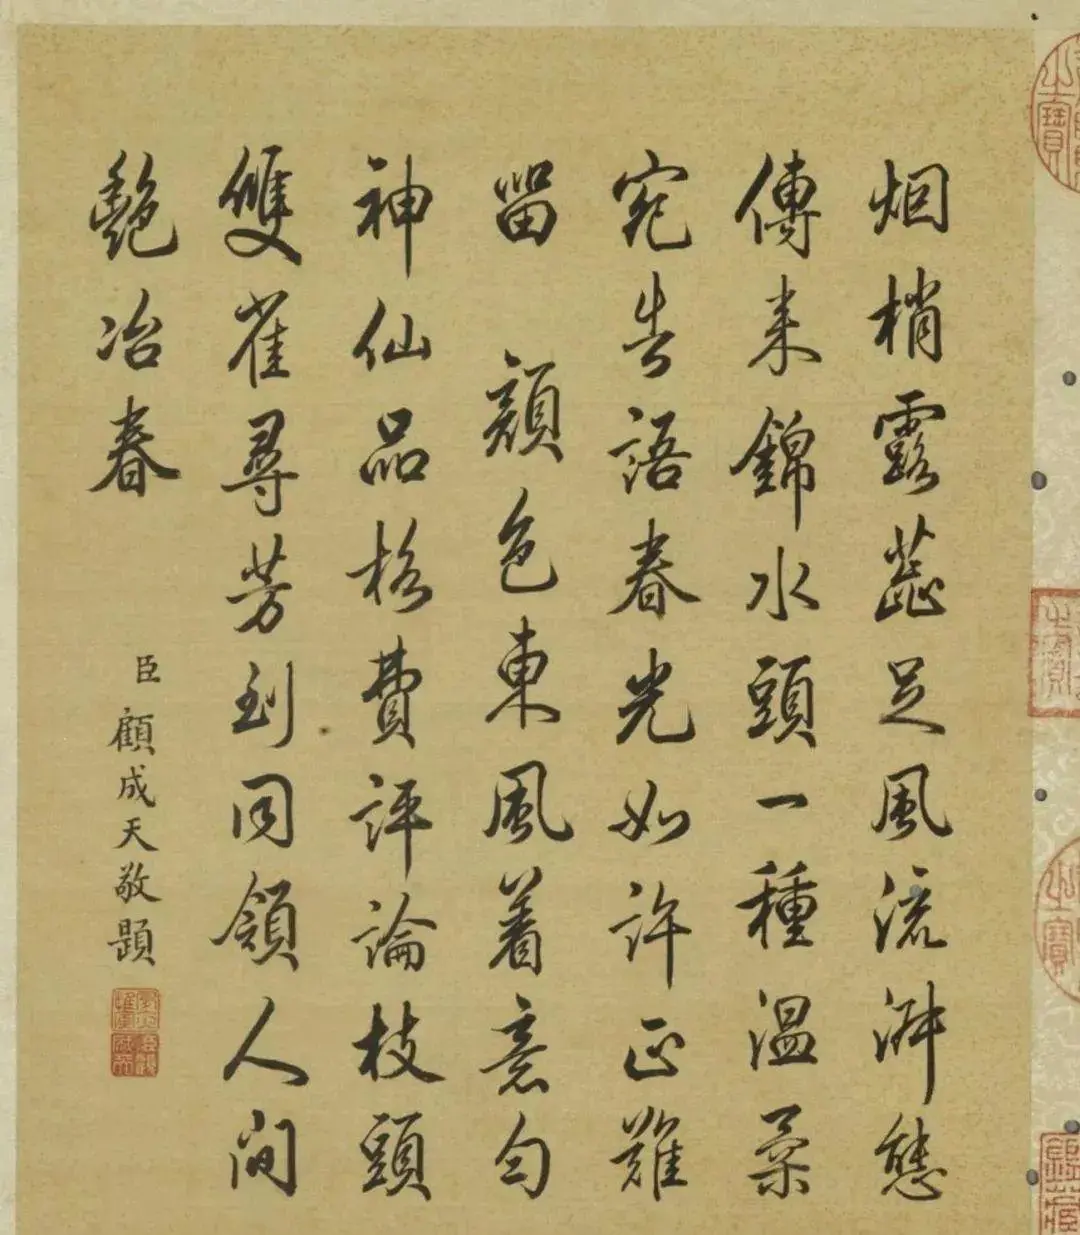 烟梢露蕋足風流態
傳来錦水頭一種温柔
宛告語春光如許正難
留 顔色東風着意匀
神仙品格費評論枝頭
雙雀尋芳到同領人間
艷冶春
臣顧成天敬題
之寶